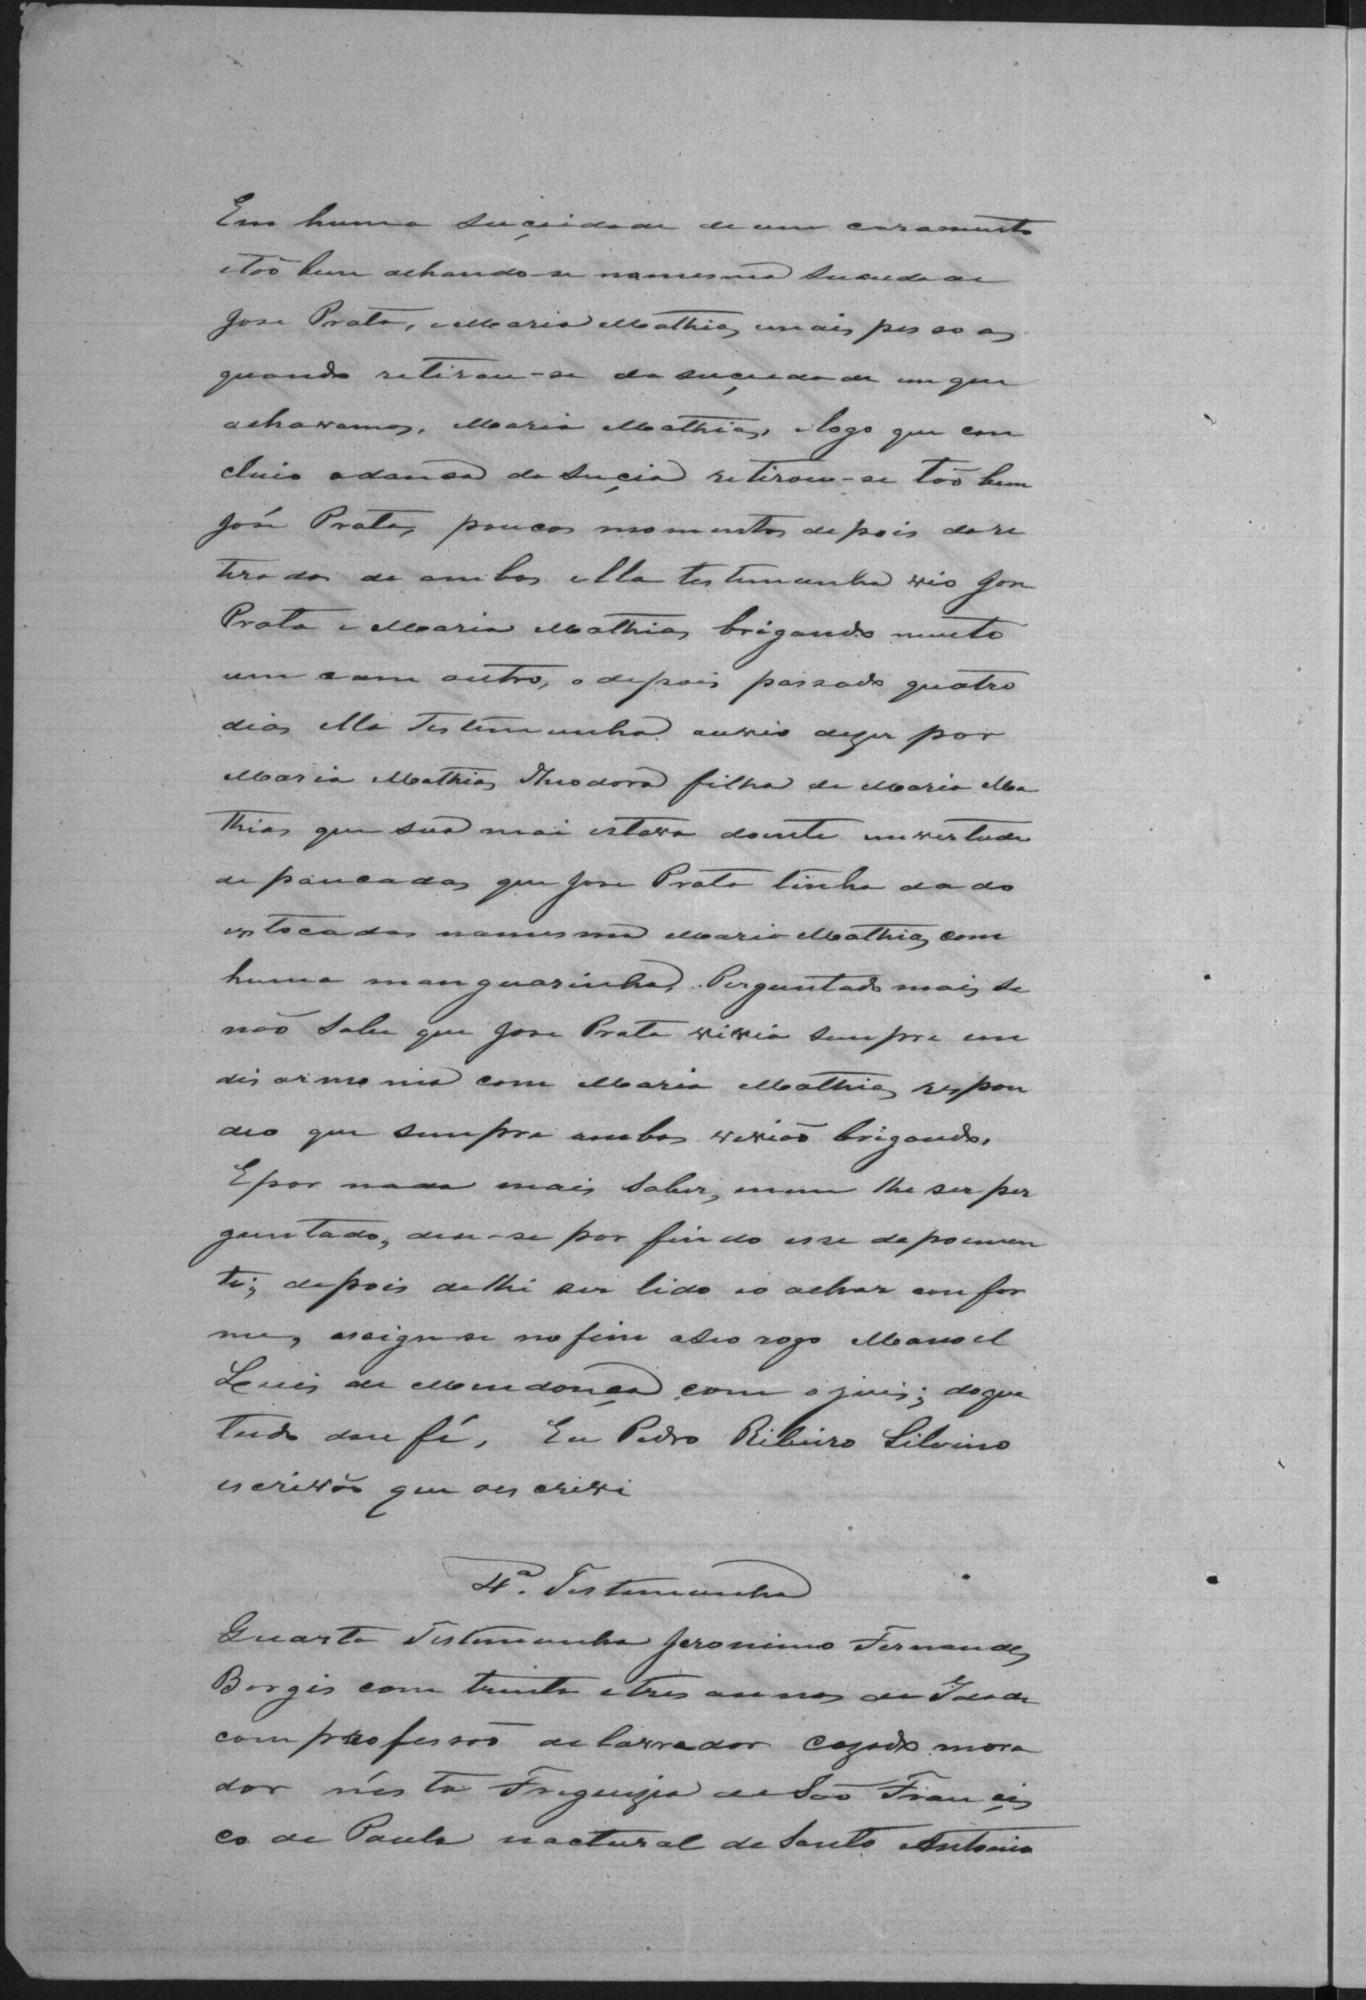 Em huma suçiedade de um casamento
etão bem achando-se namesma suciedade
Jose Prata, e Maria Mathias emais pessoas
quando retirou-se da suçiedade em que
achavamos, Maria Mathias, elogo que con
cluio adansa da suçia retirou-se tão bem
José Prata, poucos momentos depois dare
tirada de ambos ella testemunha vio Jose
Prata e Maria Mathias brigando muito
um com outro, e depois passado quatro
dias ella Testemunha ouvio dizer por
Maria Mathias Theodora filha de Maria Ma
thias que sua mai estava doente emvertude
de pancadas que Jose Prata tinha dado
estocadas namesma Maria Mathias com
huma manguarinha. Perguntado mais se
não sabe que Jose Prata vivia sempre em
disarmonia com Maria Mathias respon
deo que sempre ambos vivião brigando.
Epor nada mais saber, enem lhe ser per
guntado, deu-se por findo esse depoimen
to; depois delhe ser lido eo achar confor
me, assigna-se nofim aseo rogo Manoel
Luis de Mendonça com o juis; doque
tudo dou fé, Eu Pedro Ribeiro Silvino
escrivão que oescrivi
4ª. Testemunha
Quarta Testemunha Jeronimo Fernandes
Borgis com trinta etres annos de Idade
com proffessão delavrador cazado mora
dor nésta Freguizia de São Françis
co de Paula nactural de Santo Antonio